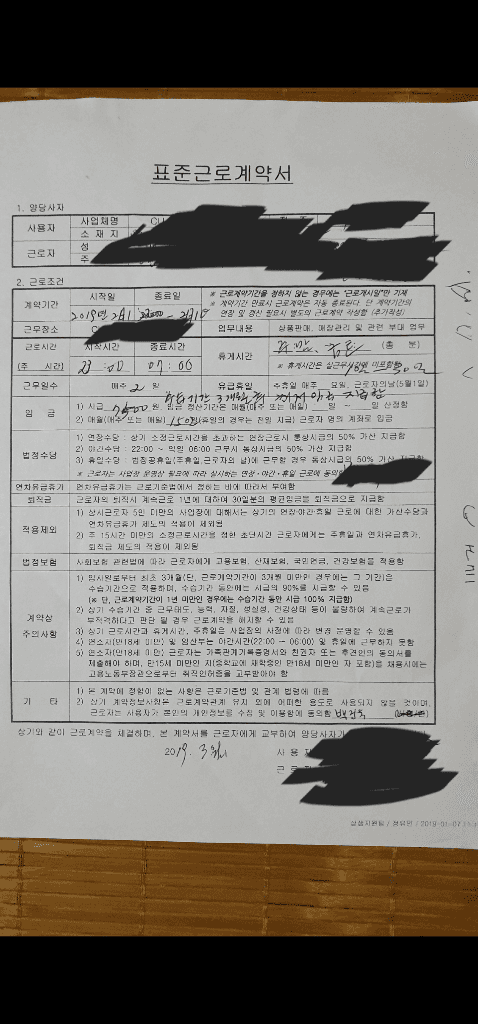 표준근로계약서
1. 당사자
사용자 사업체명 CU
소재지
근로자 성
주
2. 근로조건
계약기간 시작일 종료일
※ 근로계약기간을 정하지 않는 경우에는 "근로개시일"만 기재
※ 계약기간 만료시 근로계약은 자동 종료된다. 단 계약기간의
연장 및 갱신 필요시 별도의 근로계약 작성함 (추가작성)
2019년
근무장소 업무내용 상품판매, 매장관리 및 관련 부대 업무
근로시간 시작시간 종료시간 휴게시간 (총 분)
(주 시간) 23:00 07:00 ※ 휴게시간은 실근무시간에 미포함
근무일수 매주 2 일 유급휴일 주휴일 매주 요일, 근로자의날(5월1일)
임 금 1) 시급 원, 임금 정산기간은 매월(매주 또는 매일) 일 ~ 일 산정함
2) 매월(매주 또는 매일) 15일(휴일의 경우는 전일 지급) 근로자 명의 계좌로 입금
법정수당 1) 연장수당 : 상기 소정근로시간을 초과하는 연장근로시 통상시급의 50% 가산 지급함
2) 야간수당 : 22:00 ~ 익일 06:00 근무시 통상시급의 50% 가산 지급함
3) 휴일수당 : 법정공휴일(주휴일,근로자의 날)에 근무할 경우 통상시급의 50% 가산 지급함
※ 근로자는 사업장 운영상 필요에 따라 실시하는 연장·야간·휴일 근로에 동의
연차유급휴가 연차유급휴가는 근로기준법에서 정하는 바에 따라서 부여함
퇴직금 근로자의 퇴직시 계속근로 1년에 대하여 30일분의 평균임금을 퇴직금으로 지급함
적용제외 1) 상시근로자 5인 미만의 사업장에 대해서는 상기의 연장·야간·휴일 근로에 대한 가산수당과
연차유급휴가 제도의 적용이 제외됨
2) 주 15시간 미만의 소정근로시간을 정한 초단시간 근로자에게는 주휴일과 연차유급휴가,
퇴직금 제도의 적용이 제외됨
법정보험 사회보험 관련법에 따라 근로자에게 고용보험, 산재보험, 국민연금, 건강보험을 적용함
계약상
주의사항
1) 입사일로부터 최초 3개월(단, 근로계약기간이 3개월 미만인 경우에는 그 기간)은
수습기간으로 적용하며, 수습기간 동안에는 시급의 90%를 지급할 수 있음
(※ 단, 근로계약기간이 1년 미만인 경우에는 수습기간 동안 시급 100% 지급함)
2) 상기 수습기간 중 근무태도, 능력, 자질, 성실성, 건강상태 등이 불량하여 계속근로가
부적격하다고 판단 될 경우 근로계약을 해지할 수 있음
3) 상기 근로시간과 휴게시간, 주휴일은 사업장의 사정에 따라 변경 운영할 수 있음
4) 연소자(만18세 미만) 및 임산부는 야간시간(22:00 ~ 06:00) 및 휴일에 근무하지 못함
5) 연소자(만18세 미만) 근로자는 가족관계기록증명서와 친권자 또는 후견인의 동의서를
제출해야 하며, 만15세 미만인 자(중학교에 재학중인 만18세 미만인 자 포함)을 채용시에는
고용노동부장관으로부터 취직인허증을 교부받아야 함
기 타 1) 본 계약에 정함이 없는 사항은 근로기준법 및 관계 법령에 따름
2) 상기 계약정보사항은 근로계약관계 유지 외에 어떠한 용도로 사용되지 않을 것이며,
근로자는 사용자가 본인의 개인정보를 수집 및 이용함에 동의함
상기와 같이 근로계약을 체결하며, 본 계약서를 근로자에게 교부하여 양당사자가
2019. 3 사 용 자
근 로